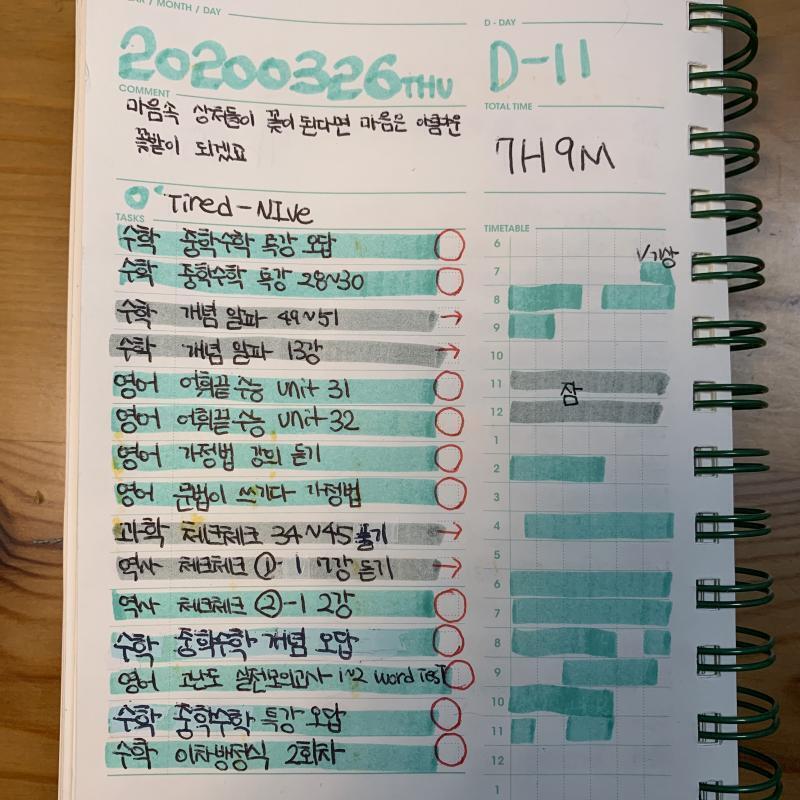 / MONTH / DAY
20200326THU
D - DAY
D-11
COMMENT
마음속 상처들이 꽃이 된다면 마음은 아름다운
꽃밭이 되겠죠
TOTAL TIME
7H 9M
Tired-NIve
TASKS
수학 중학수학 특강 오답
수학 중학수학 특강 28~30
수학 개념 알파 49~51 →
수학 개념 알파 13강 →
영어 어휘끝 수능 unit 31
영어 어휘끝 수능 unit 32
영어 가정법 강의 듣기
영어 문법이 쓰기다 가정법
과학 체크체크 34~45 풀기 →
역사 체크체크 ①-1 7강 듣기 →
역사 체크체크 ②-1 2강
수학 중학수학 개념 오답
영어 고난도 실전모의고사 1~2 word Test
수학 중학수학 특강 오답
수학 이차방정식 2회차
TIMETABLE
6
7 기상
8
9
10
11 잠
12
1
2
3
4
5
6
7
8
9
10
11
12
1